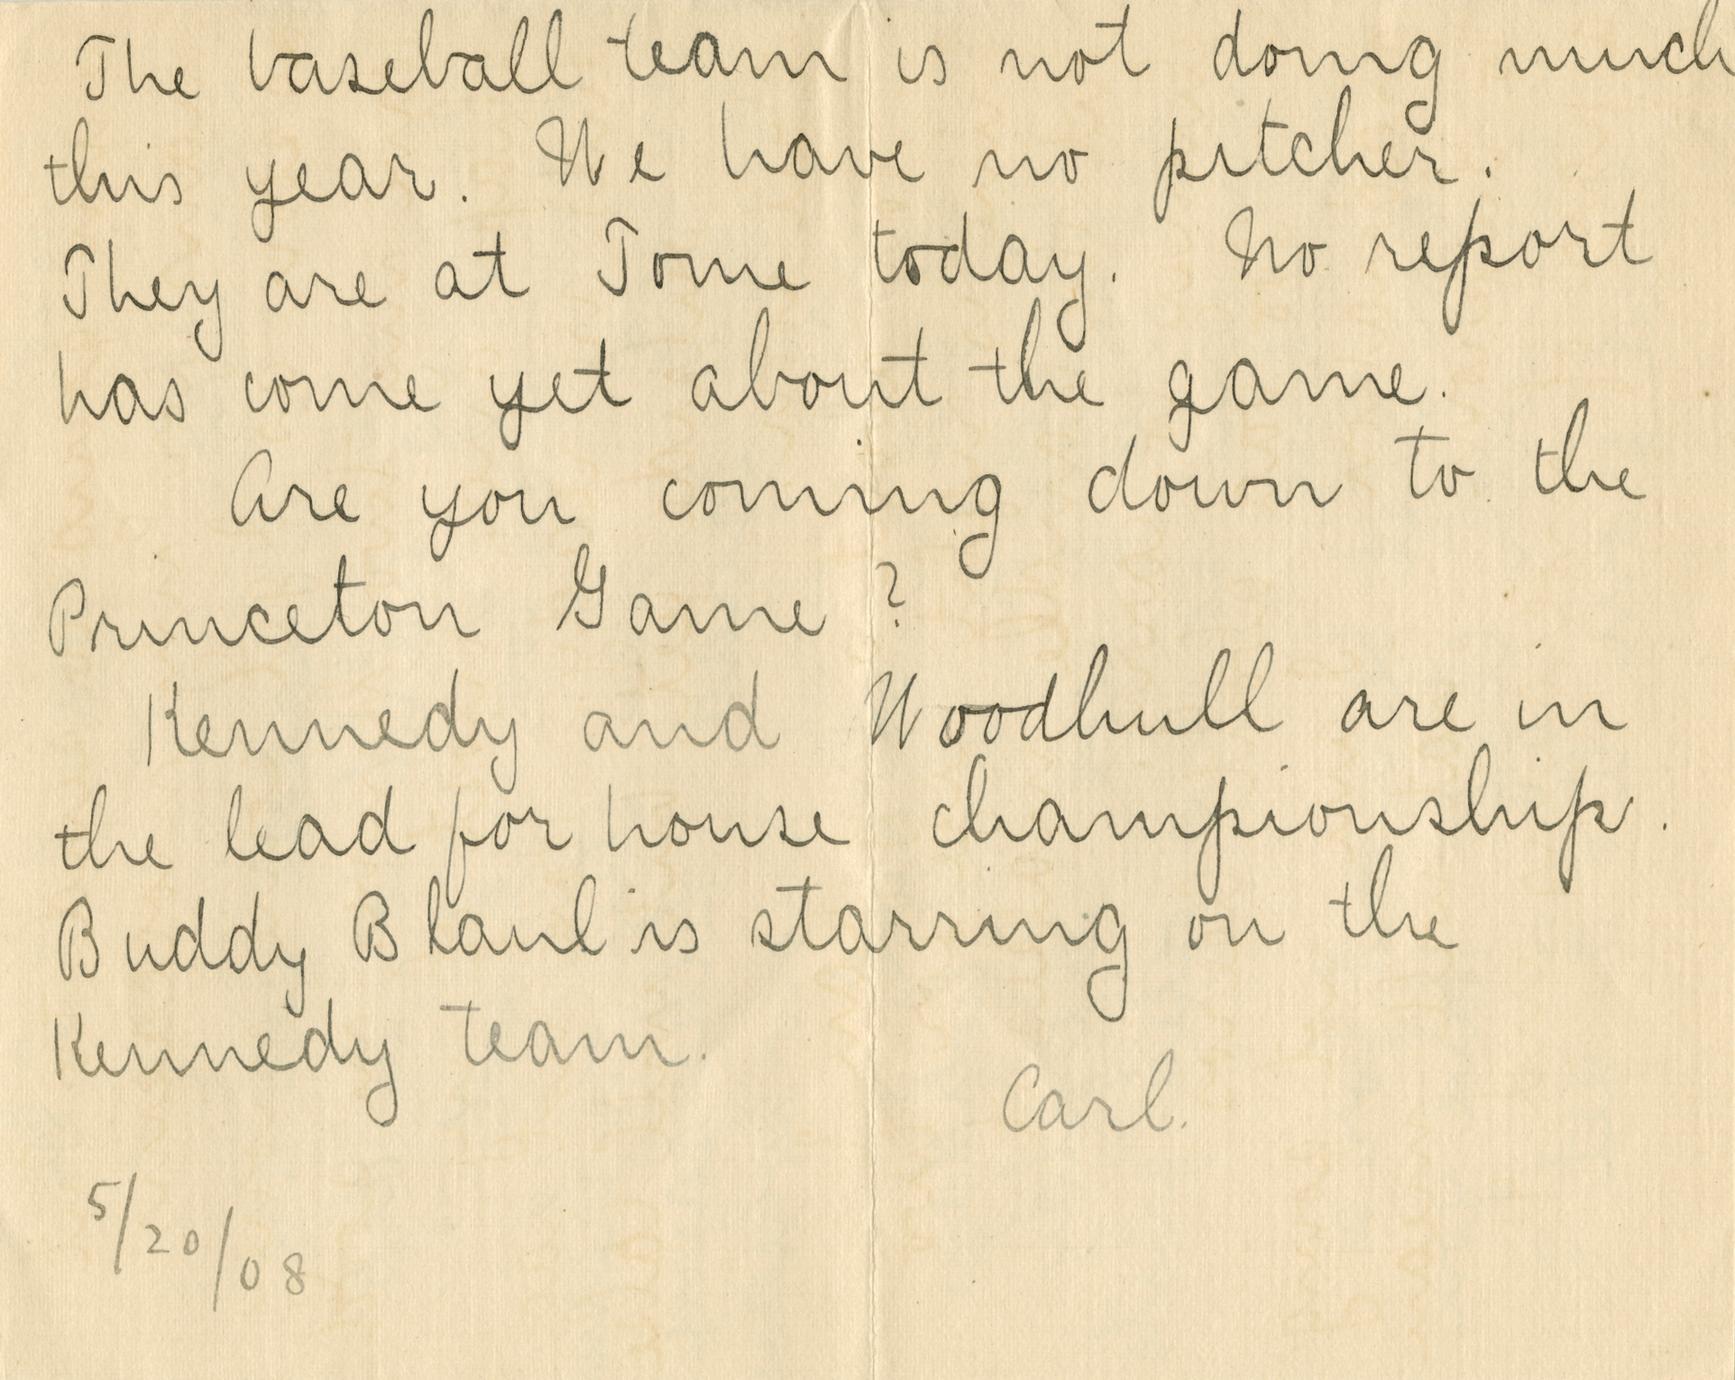 The baseball team is not doing much
this year. We have no pitcher.
They are at Tome today. No report
has come yet about the game.
Are you coming down to the
Princeton Game?
Kennedy and Woodhull are in
the lead for house championship.
Buddy Blaul is starring on the
Kennedy team.
Carl.
5/20/08